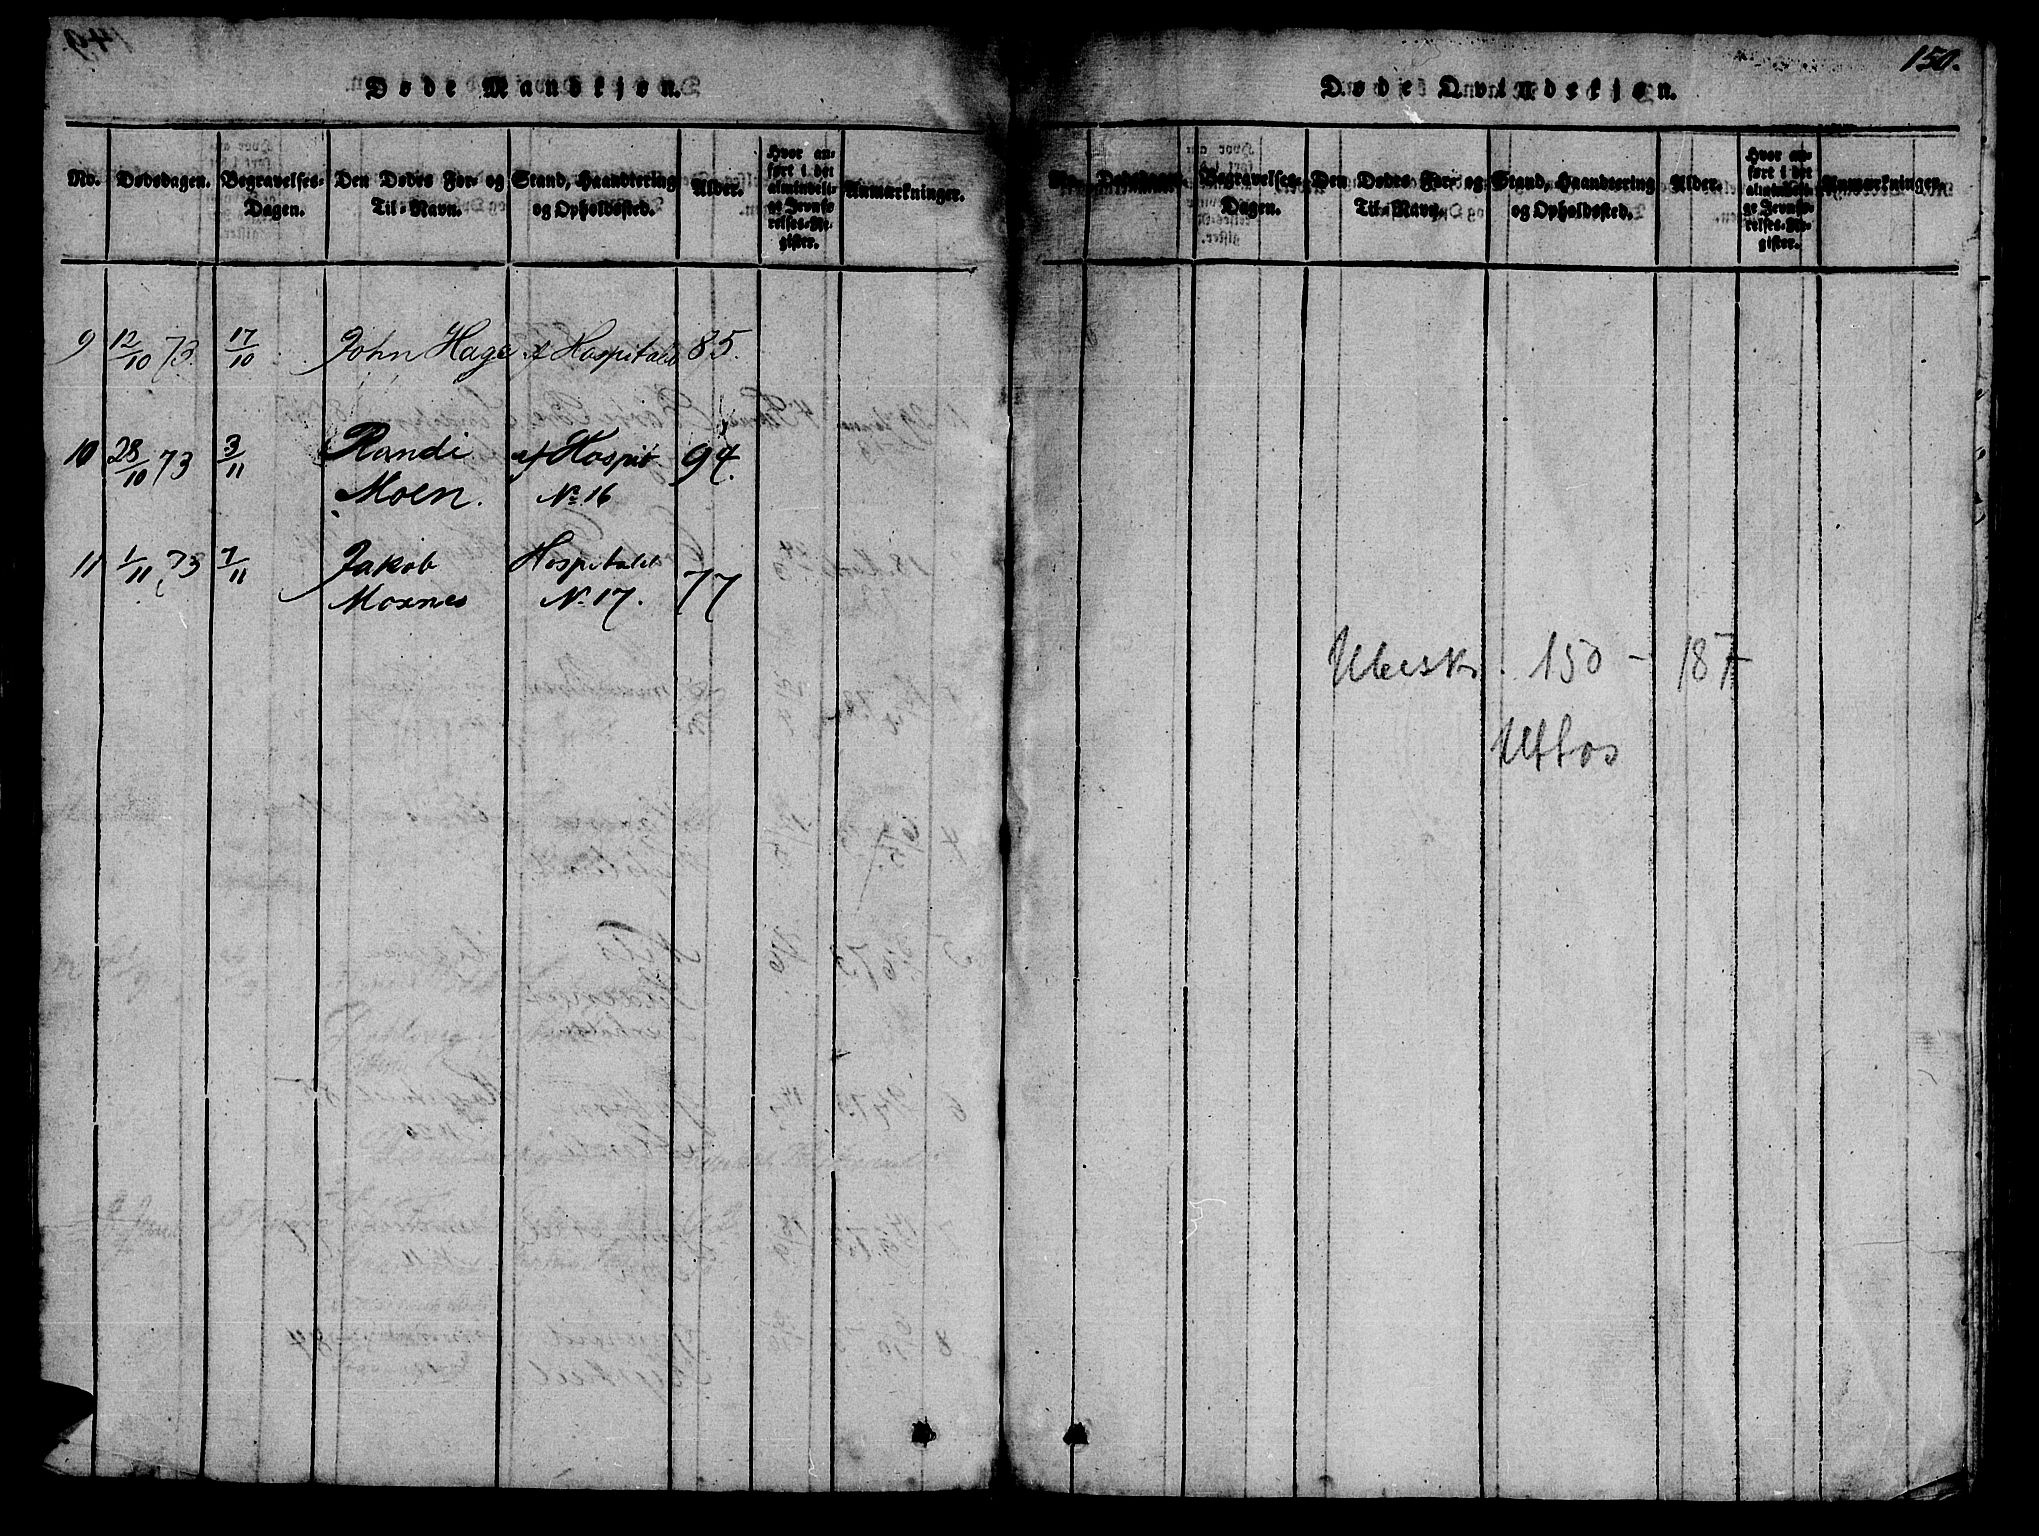 Døde Mandkjøn.
No.
Dødsdagen.
Begravelses-
Dagen.
Den Dødes For- og
Til-Navn.
Stand, Haandtering
og Opholdssted.
Alder.
Hvor an-
ført i det
almindeli-
ge Jevnfø-
relses-Re-
gister.
Anmærkninger.
9 12/10 73 17/10 John Hage af Hospitalet 85.
10 28/10 73 3/11 Randi af Hospit 94.
Moen. No 16
11 1/11 73 7/11 Jakob Hospitalet 77
Moxnes No 17.
150.
Døde Qvindekjøn.
No.
Dødsdagen.
Begravelses-
Dagen.
Den Dødes For- og
Til-Navn.
Stand, Haandtering
og Opholdssted.
Alder.
Hvor an-
ført i det
almindeli-
ge Jevnfø-
relses-Re-
gister.
Anmærkninger.
Ubesk. 150 - 187